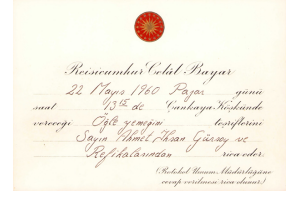 Reisicumhur Celâl Bayar
22 Mayıs 1960 Pazar günü
saat 13 15 de Çankaya Köşkünde
vereceği Öğle yemeğini teşriflerini
Sayın Ahmet İhsan Gürsoy ve
Refikalarından rica eder.
(Protokol Umum Müdürlüğüne
cevap verilmesi rica olunur.)